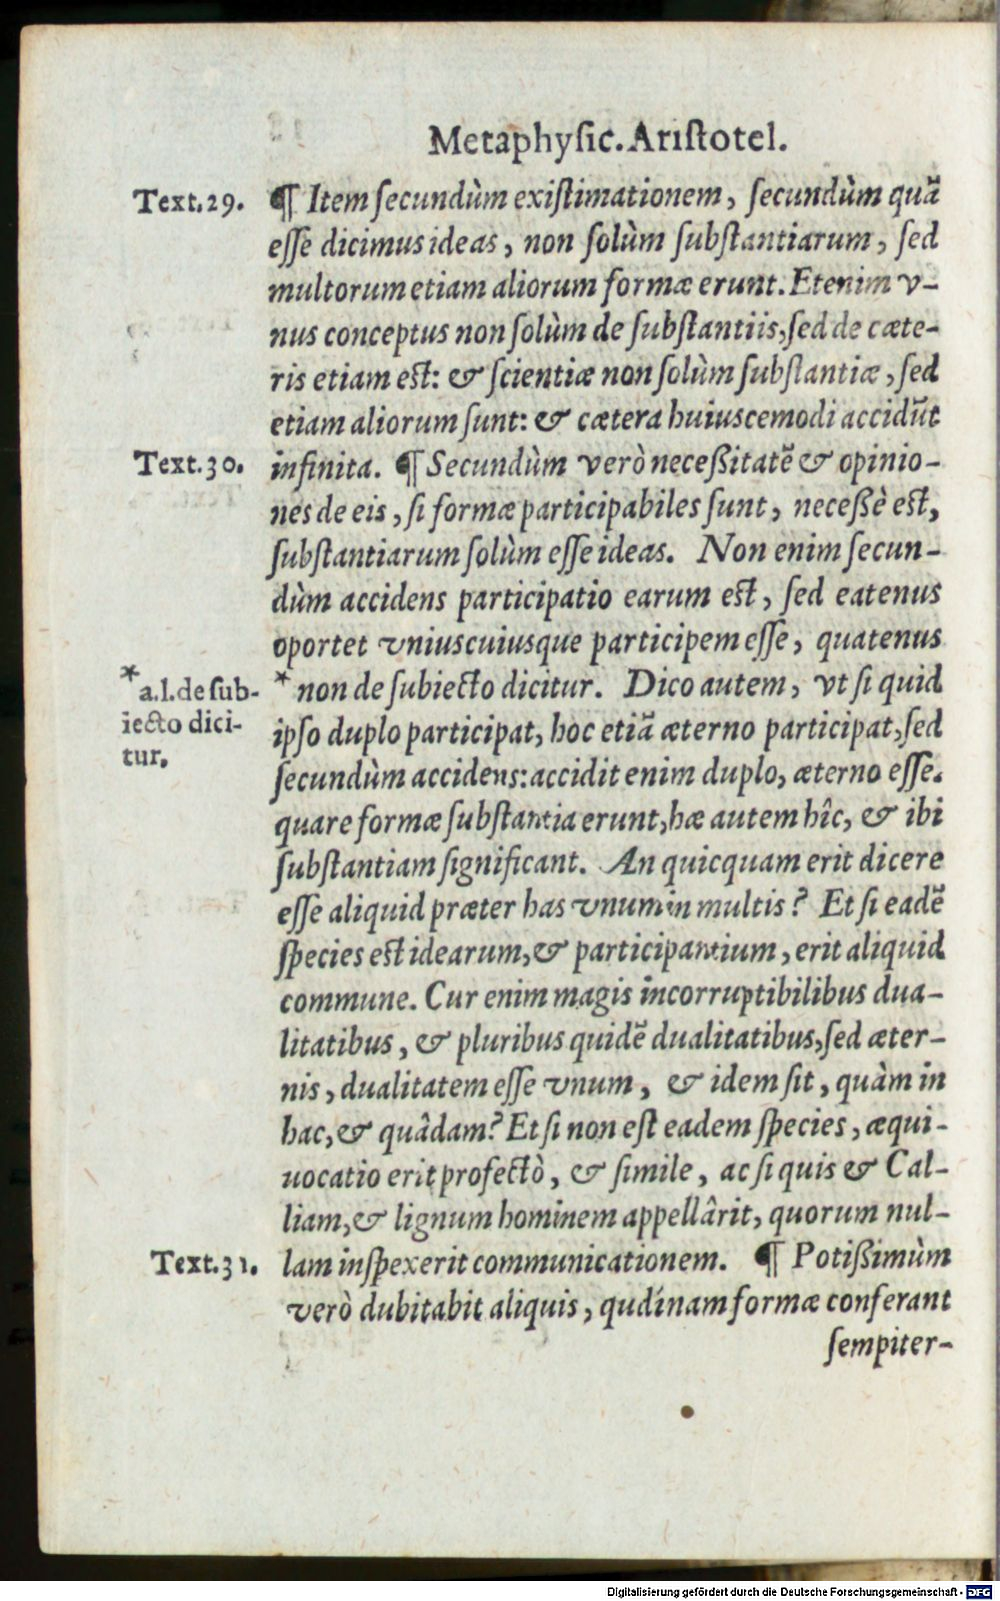 Metaphyſic. Ariſtotel.
Text. 29. ¶ Item ſecundùm exiſtimationem, ſecundùm quã
eſſe dicimus ideas, non ſolùm ſubſtantiarum, ſed
multorum etiam aliorum formæ erunt. Etenim v-
nus conceptus non ſolùm de ſubſtantiis, ſed de cæte-
ris etiam eſt: & ſcientiæ non ſolùm ſubſtantiæ, ſed
etiam aliorum ſunt: & cætera huiuscemodi accidũt
Text. 30. infinita. ¶ Secundùm verò neceßitatẽ & opinio-
nes de eis, ſi formæ participabiles ſunt, neceßè eſt,
ſubſtantiarum ſolùm eſſe ideas. Non enim ſecun-
dùm accidens participatio earum eſt, ſed eatenus
oportet vniuscuiusque participem eſſe, quatenus
* non de ſubiecto dicitur. Dico autem, vt ſi quid
* a.l. de ſub-
iecto dici-
tur.
ipſo duplo participat, hoc etiã æterno participat, ſed
ſecundùm accidens: accidit enim duplo, æterno eſſe.
quare formæ ſubſtantia erunt, hæ autem hîc, & ibi
ſubſtantiam ſignificant. An quicquam erit dicere
eſſe aliquid præter has vnum in multis? Et ſi eadẽ
ſpecies eſt idearum, & participantium, erit aliquid
commune. Cur enim magis incorruptibilibus dua-
litatibus, & pluribus quidẽ dualitatibus, ſed æter-
nis, dualitatem eſſe vnum, & idem ſit, quàm in
hac, & quâdam? Et ſi non eſt eadem ſpecies, æqui-
uocatio erit profectò, & ſimile, ac ſi quis & Cal-
liam, & lignum hominem appellârit, quorum nul-
Text. 31. lam inſpexerit communicationem. ¶ Potißimùm
verò dubitabit aliquis, qudínam formæ conferant
ſempiter-
Digitalisierung gefördert durch die Deutsche Forschungsgemeinschaft - DFG